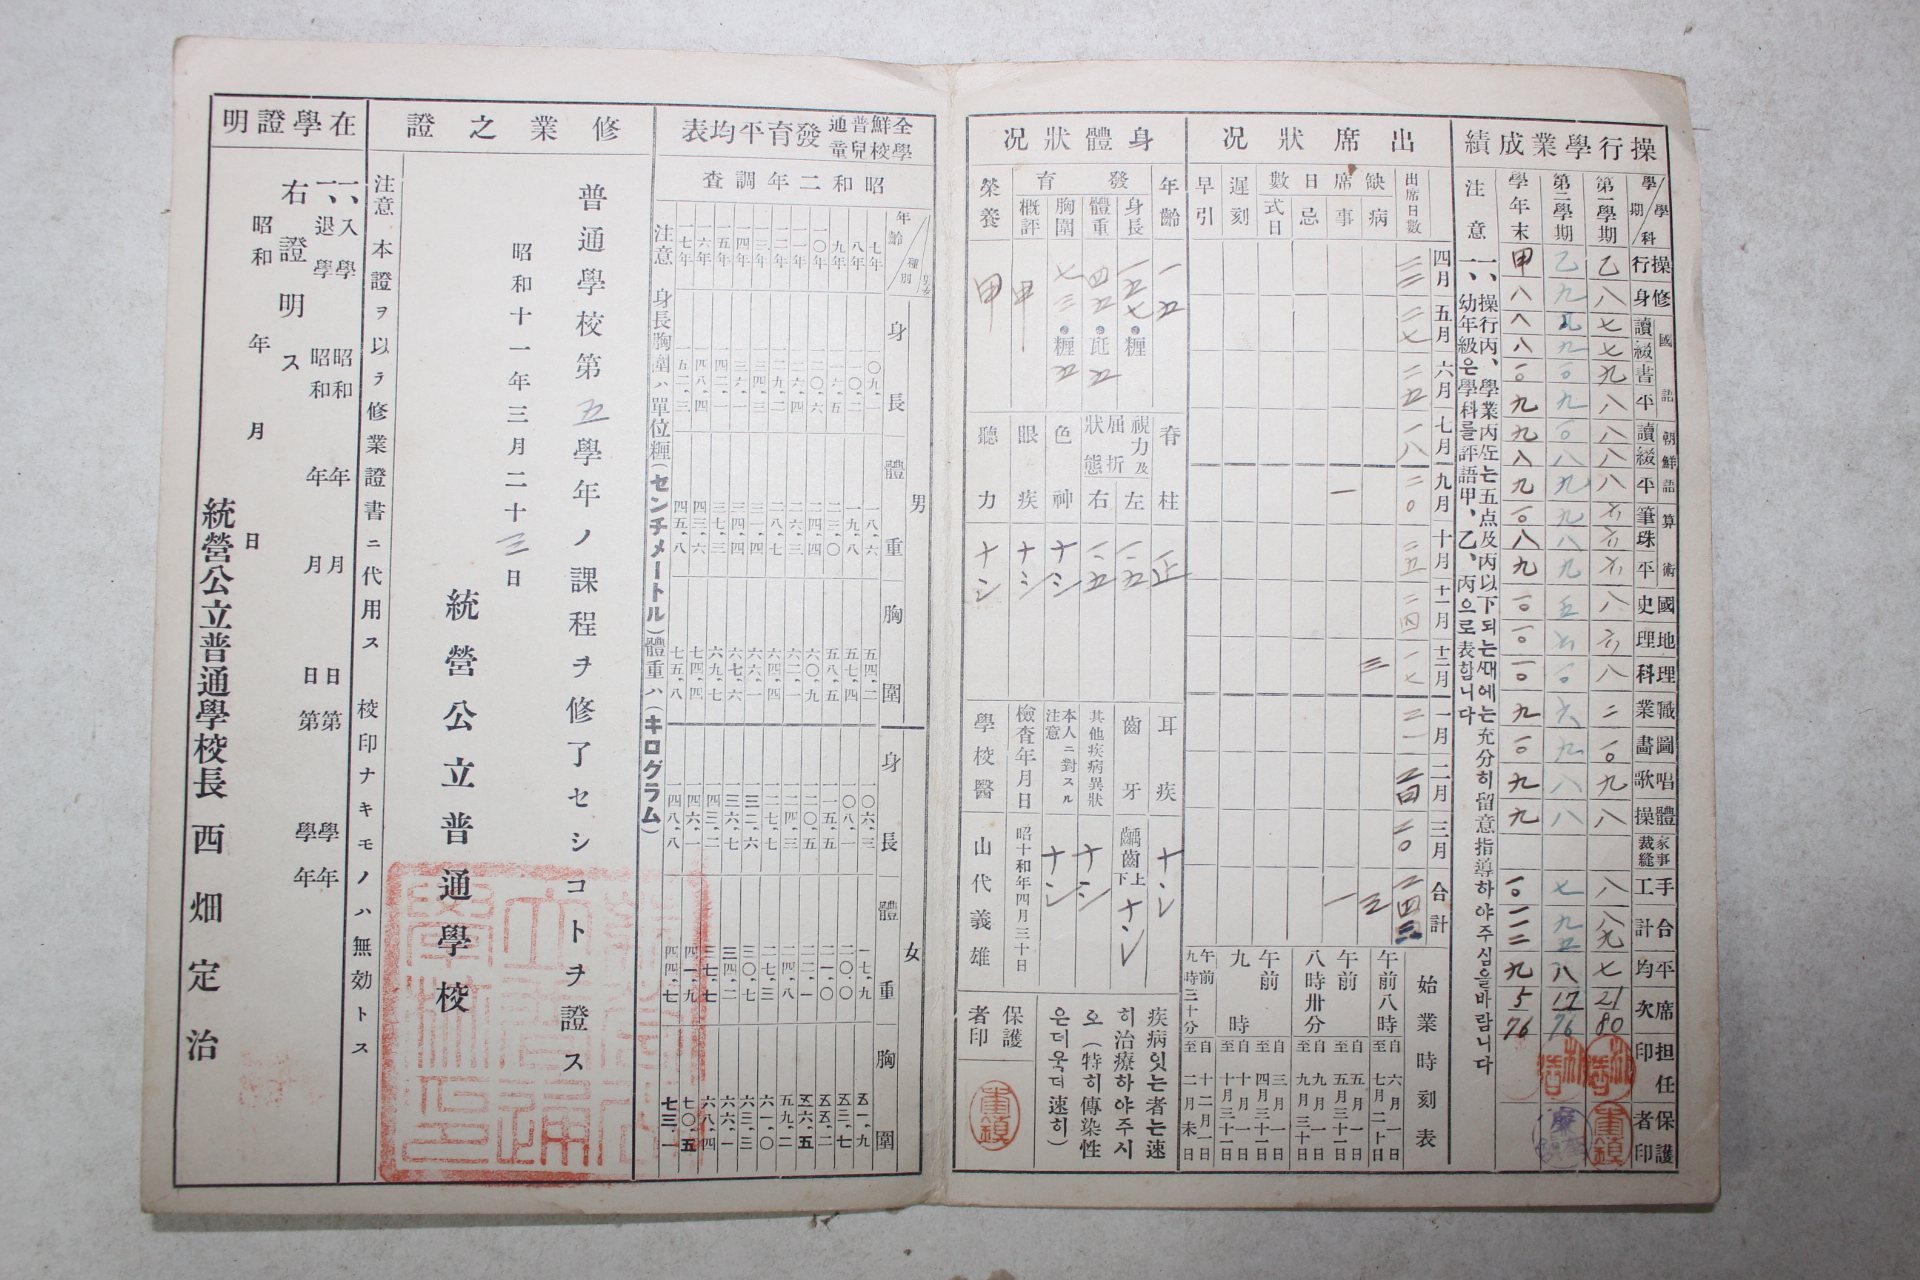 操行學業成績
學期/學科
操行
修身
國語
讀
綴
書
平
朝鮮語
讀
綴
平
算術
筆
珠
平
國史
地理
理科
職業
圖畫
唱歌
體操
家事裁縫
手工
合計
平均
席次
担任印
保護者印
第一學期
乙
八
七
七
九
八
八
八
八
六
六
六
八
六
八
二
一〇
九
八
八
八九
七
21
80
第二學期
乙
九
九
九
一〇
九
一〇
八
九
九
八
九
五
六
一〇
六
九
八
八
七
九五
八
12
76
學年末
甲
八
八
八
一〇
九
九
八
九
一〇
八
九
一〇
一〇
一〇
九
一〇
九
九
一〇
一一二
九
5
76
注意
一、操行丙、學業丙또는五点及丙以下되는때에는充分히留意指導하야주심을바람니다
一、幼年級은學科를評語甲、乙、丙으로表합니다
出席狀況
出席日數
缺席日數
病
事
忌
式日
遲刻
早引
四月
二三
五月
二七
六月
二五
七月
一八
九月
二〇
一
十月
二五
十一月
二四
十二月
一七
三
一月
二一
二月
二四
三月
二〇
合計
二四三
三
一
始業時刻表
午前八時
自六月一日
至七月二十日
午前八時卅分
自五月一日
至五月三十一日
自九月一日
至九月三十日
午前九時
自三月一日
至四月三十日
自十月一日
至十月三十一日
午前九時三十分
自十一月一日
至二月末日
身體狀況
年齡
一五
發育
身長
一五七•糎
體重
四五•瓩五
胸圍
七三•糎五
概評
甲
榮養
甲
脊柱
正
視力及屈折狀態
左
一.五
右
一.五
色神
ナシ
眼疾
ナシ
聽力
ナシ
耳疾
ナシ
齒牙
齲齒
上
下
ナシ
其他疾病異狀
ナシ
本人ニ對スル注意
ナシ
檢査年月日
昭和十年四月三十日
學校醫
山代義雄
疾病잇는者는速히治療하야주시오(特히傳染性은더욱더速히)
保護者印
全鮮普通學校兒童發育平均表
昭和二年調査
年齡/種別/男女
男
身長
體重
胸圍
女
身長
體重
胸圍
七年
一〇九.一
一八.六
五四.二
一〇六.三
一七.九
五一.九
八年
一一〇.二
一九.八
五七.四
一〇八.一
二〇.〇
五三.七
九年
一一六.五
二三.〇
五八.五
一一五.五
二一.〇
五五.二
一〇年
一二〇.六
二四.四
六〇.九
一二〇.五
二二.一
五六.五
一一年
一二六.四
二六.三
六二.一
一二四.三
二四.八
五九.二
一二年
一二九.二
二八.七
六四.四
一二七.七
二七.三
六一.〇
一三年
一三四.三
三一.四
六六.一
一三二.六
三〇.七
六三.三
一四年
一三六.一
三四.四
六七.六
一三六.七
三四.二
六六.一
一五年
一四二.一
三七.三
六九.七
一四三.二
三七.七
六八.四
一六年
一四八.四
四三.六
七四.四
一四六.一
四一.九
七〇.五
一七年
一五二.三
四五.八
七五.八
一四八.八
四四.七
七三.一
注意 身長胸圍ハ單位糎(センチメートル)體重ハ(キログラム)
修業之證
普通學校第五學年ノ課程ヲ修了セシコトヲ證ス
昭和十一年三月二十三日
統營公立普通學校
注意 本證ヲ以テ修業證書ニ代用ス 校印ナキモノハ無効トス
在學證明
一、入學 昭和 年 月 日第 學年
一、退學 昭和 年 月 日第 學年
右證明ス
昭和 年 月 日
統營公立普通學校長 西畑定治